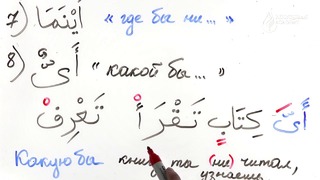 7) أَيْنَمَا « где бы ни... »
8) أَىُّ « какой бы... »
أَىَّ كِتَابٍ تَقْرَأْ تَعْرِفْ
Какую бы книгу ты (ни) читал,
узнаешь